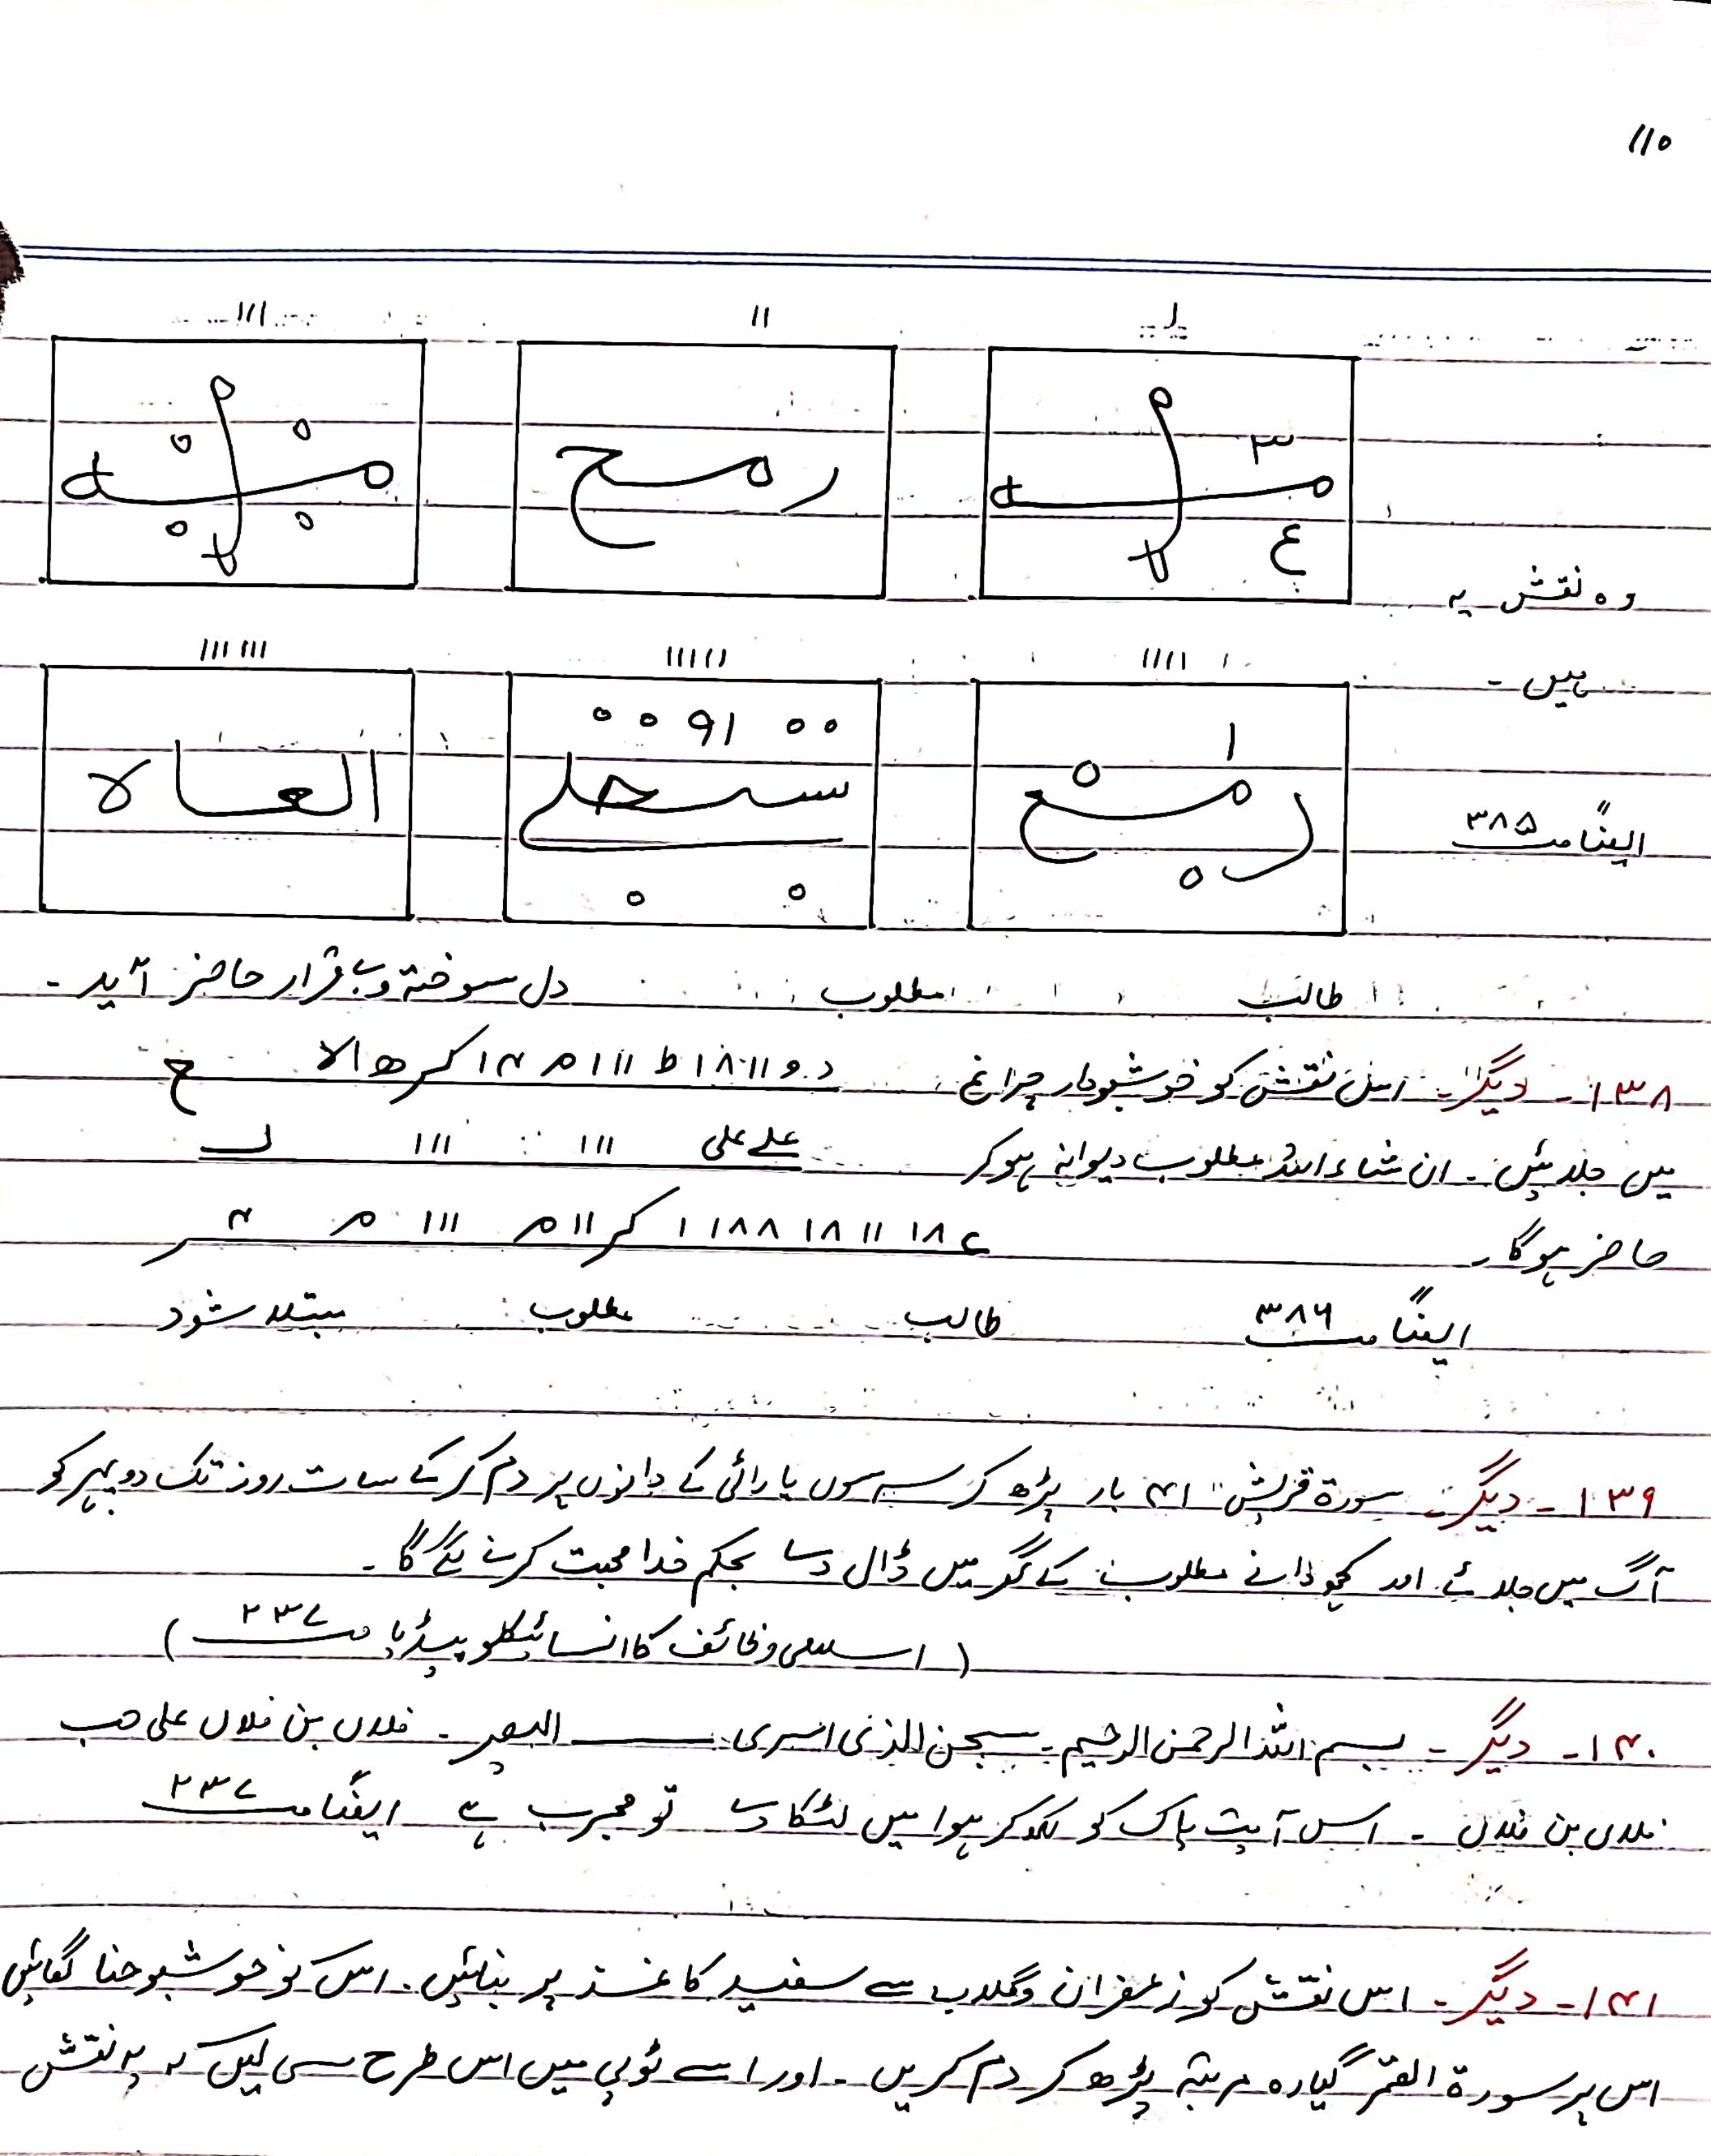 ۱۱۰
ا || |||
۳ ع
رمح
وہ نقش یہ
|||| ||||| ||| |||
ہیں ۔
۰۰ ۹۱ ۰۰
ایضاً صـ ۳۸۵
طالب مطلوب دل سوختہ و بے قرار حاضر آید ۔
۱۳۸ ۔ دیگر ۔ اس نقش کو خوشبودار چراغ
میں جلائیں ۔ ان شاء اللہ مطلوب دیوانہ ہوکر علے علی ||| ||| لـ
حاضر ہوگا ۔
ایضاً صـ ۳۸۶ طالب مطلوب مبتلا شود
۱۳۹ ۔ دیگر ۔ سورۃ قریش ۴۱ بار پڑھ کر سرسوں یا رائی کے دانوں پر دم کر کے سات روز تک دوپہر کو
آگ میں جلائے اور کچھ دانے مطلوب کے گھر میں ڈال دے بحکم خدا محبت کرنے لگے گا ۔
( اسلامی وظائف کا انسائیکلوپیڈیا صـ ۲۳۷ )
۱۴۰ ۔ دیگر ۔ بسم اللہ الرحمن الرحیم ۔ سبحن الذی اسری ــــــ البصیر ۔ فلاں بن فلاں علی حب
فلاں بن فلاں ۔ اس آیت پاک کو لکھ کر ہوا میں لٹکا دے تو مجرب ہے ایضاً صـ ۲۳۷
۱۴۱ ۔ دیگر ۔ اس نقش کو زعفران و گلاب سے سفید کاغذ پر بنائیں ۔ اس کو خوشبو حنا لگائیں
اس پر سورۃ القمر گیارہ مرتبہ پڑھ کر دم کریں ۔ اور اسے ٹوپی میں اس طرح سی لیں کہ یہ نقش